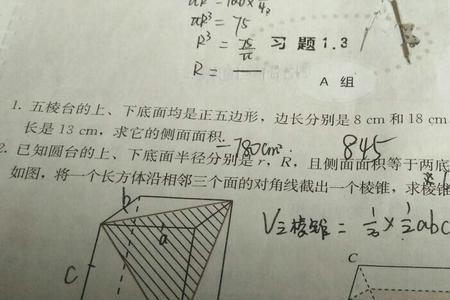 πR³ = 75
R³ = 75/π
R =
习题1.3
A 组
1. 五棱台的上、下底面均是正五边形，边长分别是 8 cm 和 18 cm
长是 13 cm，求它的侧面面积.
= 780cm² 845
2. 已知圆台的上、下底面半径分别是 r，R，且侧面面积等于两底
如图，将一个长方体沿相邻三个面的对角线截出一个棱锥，求棱锥
b
a
c
V三棱锥 = 1/3 × 1/2 abc
C